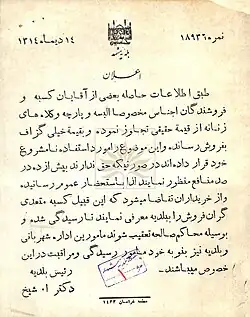 نمره ۱۸۹۳۶
۱۴ دیماه ۱۳۱۴
بلدیه مشهد
اعلان
طبق اطلاعات حاصله بعضی از آقایان کسبه و
فروشندگان اجناس مخصوصا البسه و پارچه و کلاه های
زنانه از قیمة حقیقی تجاوز نموده و بقیمة خیلی گزاف
بفروش رسانده و این موضوع را مورد استفاده نامشروع
خود قرار داده اند در صورتیکه حق ندارند بیش از ده در
صد منافع منظور نمایند لذا باستحضار عموم رسانیده
و از خریداران تقاضا میشود که این قبیل کسبه متعدی
و گران فروش را ببلدیه معرفی نمایند تا رسیدگی شده و
بوسیله محاکم صالحه تعقیب شوند مامورین اداره شهربانی
و بلدیه نیز بنوبه خود مامور رسیدگی و مراقبت در این
خصوص میباشند
رئیس بلدیه
دکتر ا شیخ
مطبعه خراسان